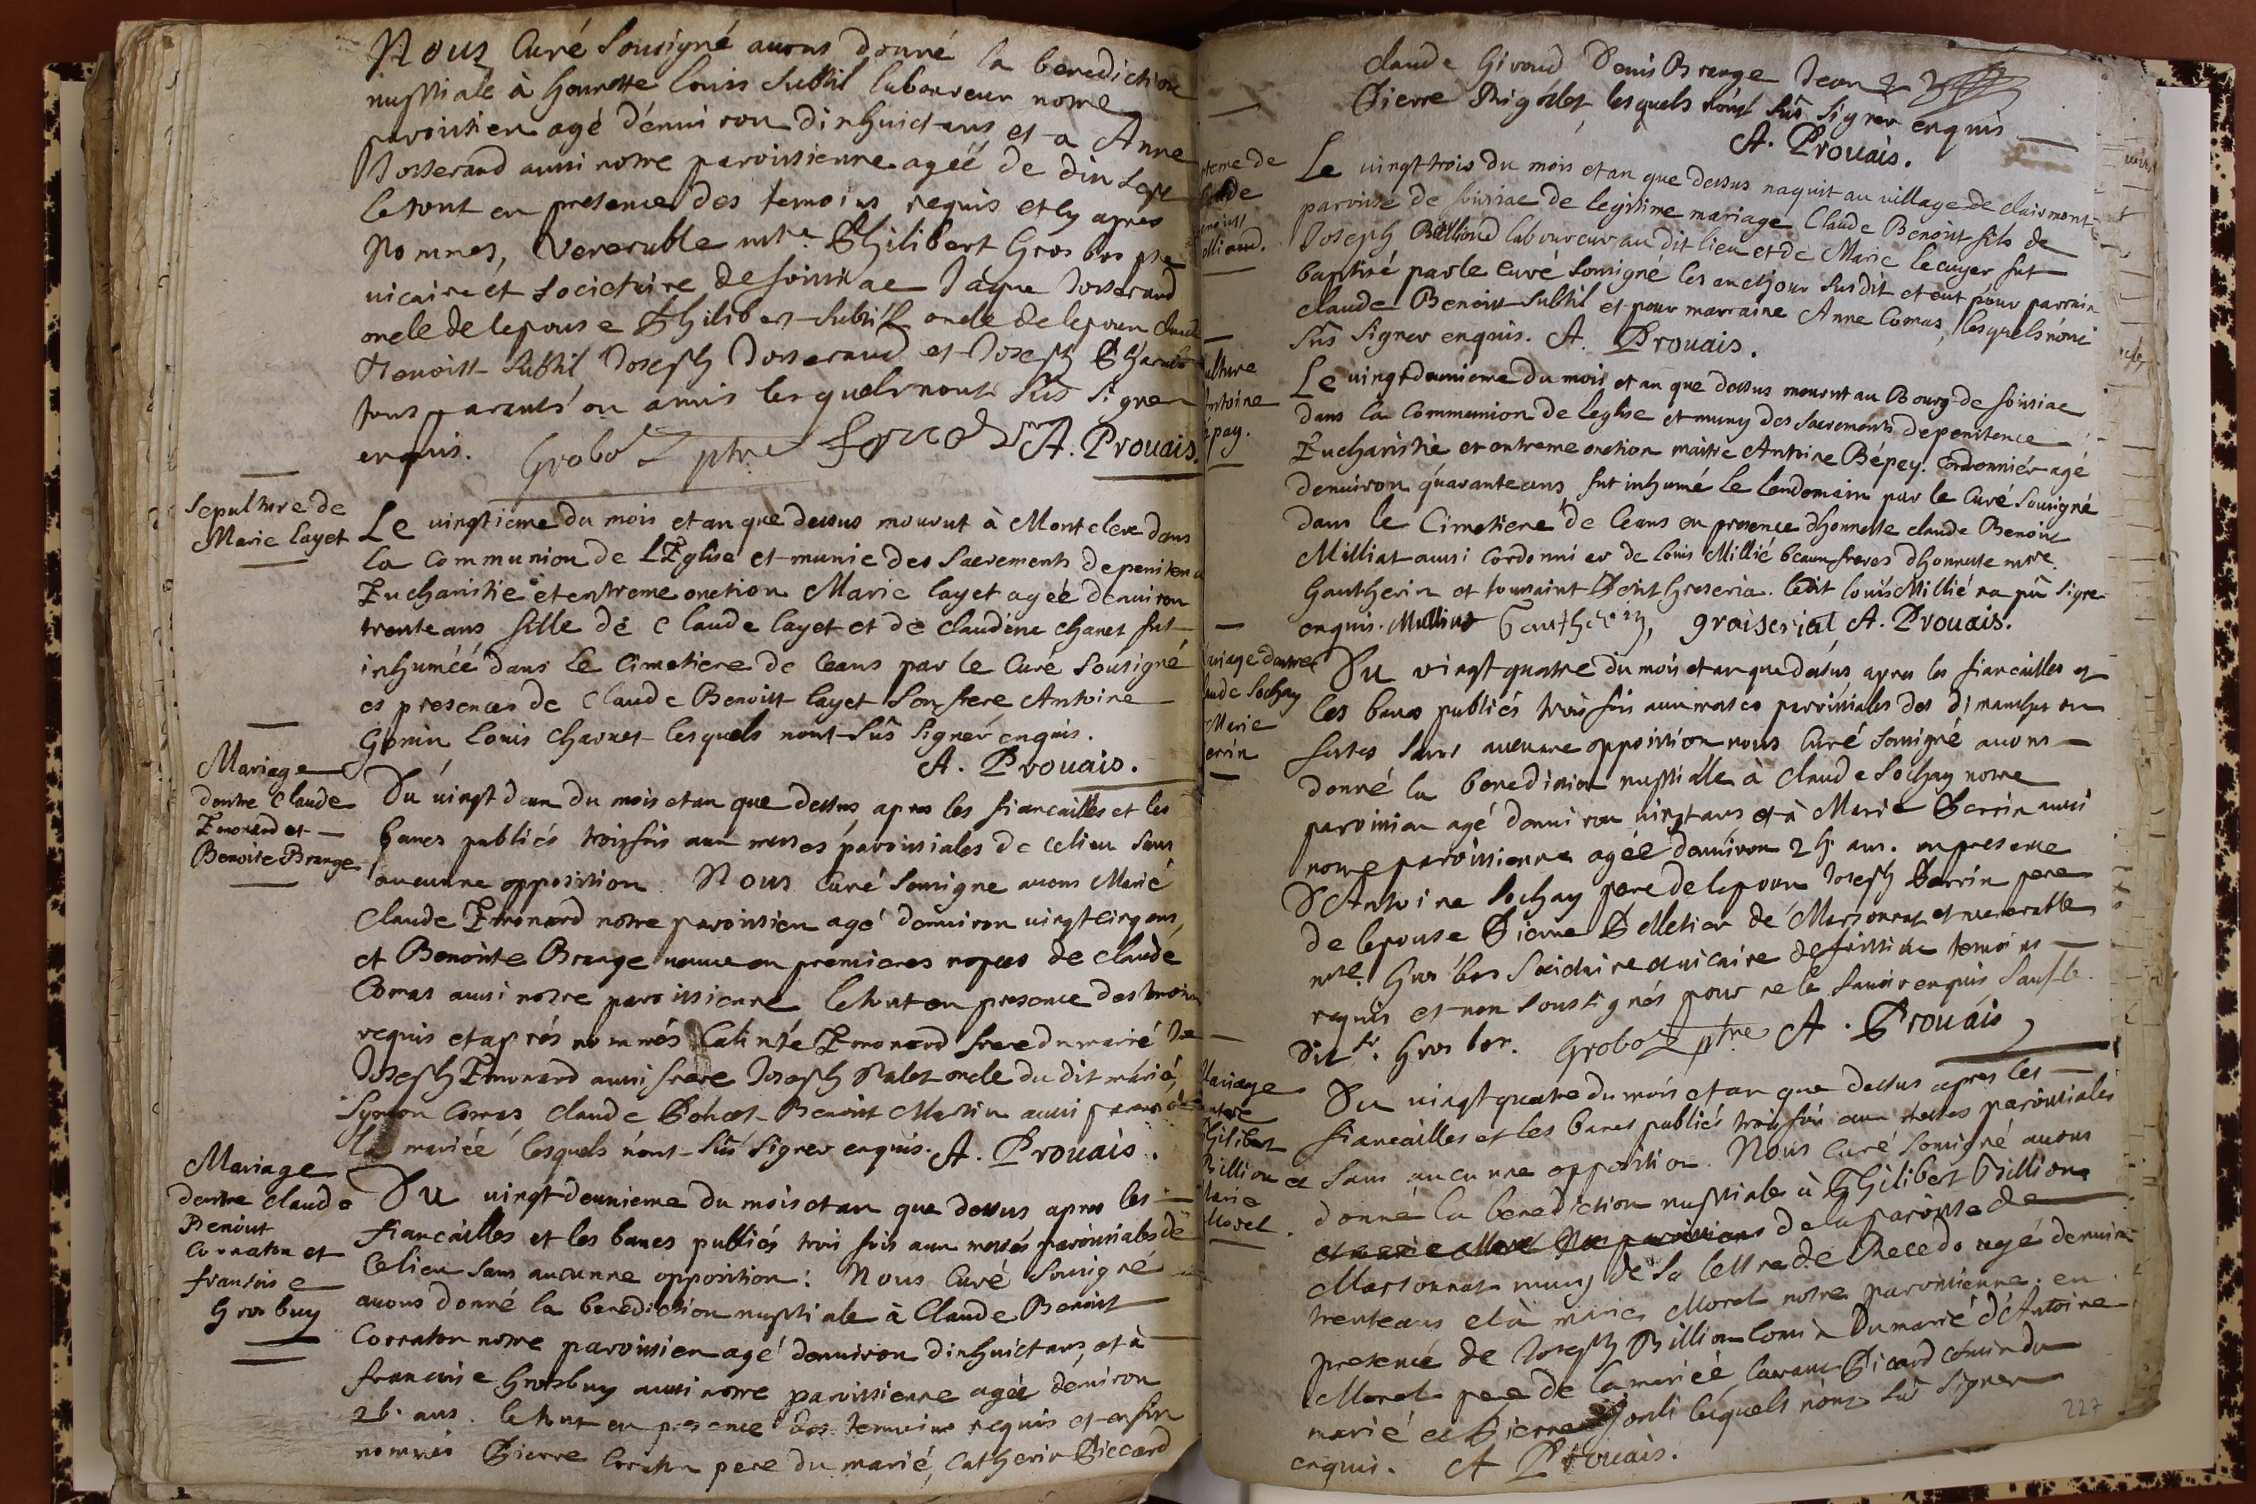 Nous Curé sousigné auons donné la benediction
nuptiale à honneste Louis Subtil laboureur notre
paroissien agé d'enuiron dixhuict ans et a Anne
Josserand aussi notre paroissienne agée de dix sept
le tout en presence des temoins requis et cy apres
Nommes, Venerable mre Philibert Gros bos ptre
uicaire et societaire de foissiac Jaque Josserand
oncle de lepouse Philibert Subtil oncle de lepoux Claude
Benoist Subtil Joseph Josserand et Joseph
tous parents ou amis lesquels n'ont sus signer
enquis. Grobos ptre A. Prouais.
Sepulture de
Marie layet
Le uingtieme du mois et an que dessus mourut à Montclere dans
la Communion de l'Eglise et munie des sacrements de penitence
Eucharistie et extreme onction Marie layet agée denuiron
trente ans fille de Claude layet et de Claudine chanet fut
inhumée dans le Cimetiere de Ceans par le Curé sousigné
es presences de Claude Benoist layet son frere Antoine
Gonin Louis Charnet lesquels n'ont sus signer enquis.
A. Prouais.
Mariage
dentre Claude
Emorard et
Benoite Brange
Du uingt deux du mois et an que dessus, apres les fiancailles et les
bancs publiés trois fois aux messes paroissiales de celieu sans
aucunne opposition. Nous Curé sousigné auons Marié
Claude Emonard notre paroissien agé denuiron uingt cinq ans,
et Benoite Brange ueuue en premieres nopces de Claude
Comas aussi notre paroissienne le tout en presence des temoins
requis et après nommés Emonard frere du marié
Joseph Emonard aussi frere Joseph Palet oncle du dit marié,
Symon Comas Claude Benoist Martin aussi parent de
la mariée lesquels n'ont sus signer enquis. A. Prouais.
Mariage
dentre Claude
Benoist
Corraton et
fransoise
Gros buy
Du uingt deuxieme du mois et an que dessus apres les
fiancailles et les bancs publiés trois fois aux messes paroissiales de
Celieu sans aucunne opposition: Nous Curé sousigné
auons donné la benediction nuptiale à Claude Benoist
Corraton notre paroissien agé denuiron dixhuict ans, et à
francoise Grosbuy aussi notre paroissienne agée denuiron
26. ans. le tout en presence des temoins requis et enfin
nommés Pierre Corraton pere du marié, Catherin Piccard
Claude Giroud Denis Brange Jean
Pierre Rigolet, lesquels n'ont sus signer enquis
A. Prouais.
Le uingt trois du mois et an que dessus naquit au uillage de clairmont
paroisse de foissiac de legitime mariage Claude Benoist fils de
Joseph Billioud laboureur au dit lieu et de Marie lecuyer fut
baptisé par le Curé sousigné les an et jour susdit et eut pour parrain
Claude Benoist Subtil et pour marraine Anne Comas, lesquels n'ont
sus signer enquis. A. Prouais.
Le uingt deuxieme du mois et an que dessus mourut au Bourg de foissiac
dans la Communion de leglise et muny des sacrements de penitence
Eucharistie et extreme onction maitre Antoine Bépey Cordonnier agé
denuiron quarante ans fut inhumé le lendemain par le Curé sousigné
dans le Cimetiere de Ceans en presence d'honneste Claude Benoist
Milliat aussi Cordonnier de Louis Millié beaux freres d'honneste mtre
Gautherin et toussaint Petit Greseria. ledit louis Millié na pû signer
enquis. Milliat Gautherin, graiserial A. Prouais.
Mariage dentre
Claude Sochay
Marie
Du vingt quatre du mois et an que dessus, apres les fiancailles et
les bancs publiés trois fois aux messes paroissiales des dimanches ou
festes sans aucunne opposition nous Curé sousigné auons
donné la benediction nuptialle à Claude Sochay notre
paroissien agé denuiron uingt ans et à Marie Perrin aussi
notre paroissienne agée denuiron 24. ans. en presence
D'Antoine Sochay pere de lepoux Joseph Perrin pere
de lepouse Pierre Pelletier de Marsonnas et uenerable
mre. Gros bos Societaire et uicaire de foissiac temoins
requis et non soussignés pour ne le sauoir enquis sauf le
dit sr. Gros bos. Grobos ptre A. Prouais
Mariage
entre
Philibert
Billion et
Marie
Morel
Du uingt quatre du mois et an que dessus apres les
fiancailles et les bancs publiés trois fois aux messes paroissiales
sans aucunne opposition. Nous Curé sousigné auons
donné la benediction nuptiale à Philibert Billion
de la paroisse de
Marsonnas muny de sa lettre de Recedo agé denuiron
trente ans et à marie Morel notre paroissienne. en
presence de Joseph Billion cousin du marié d'Antoine
Morel pere de la mariée laurans Picard cousin du
marié et Pierre lesquels nont sus signer
enquis. A Prouais.
227